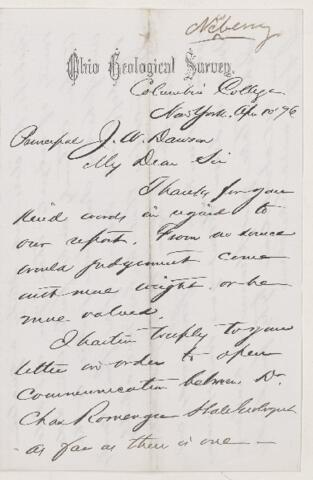 Newberry
Ohio Geological Survey.
Columbia College
New York, Apr 10 '76
Principal J. W. Dawson
My Dear Sir
Thanks for your
kind words in regard to
our report. From no source
would judgement come
with more weight or be
more valued.
I hasten to reply to your
letter in order to open
communication between Dr.
Chas Rominger State Geologist
- as far as there is one -